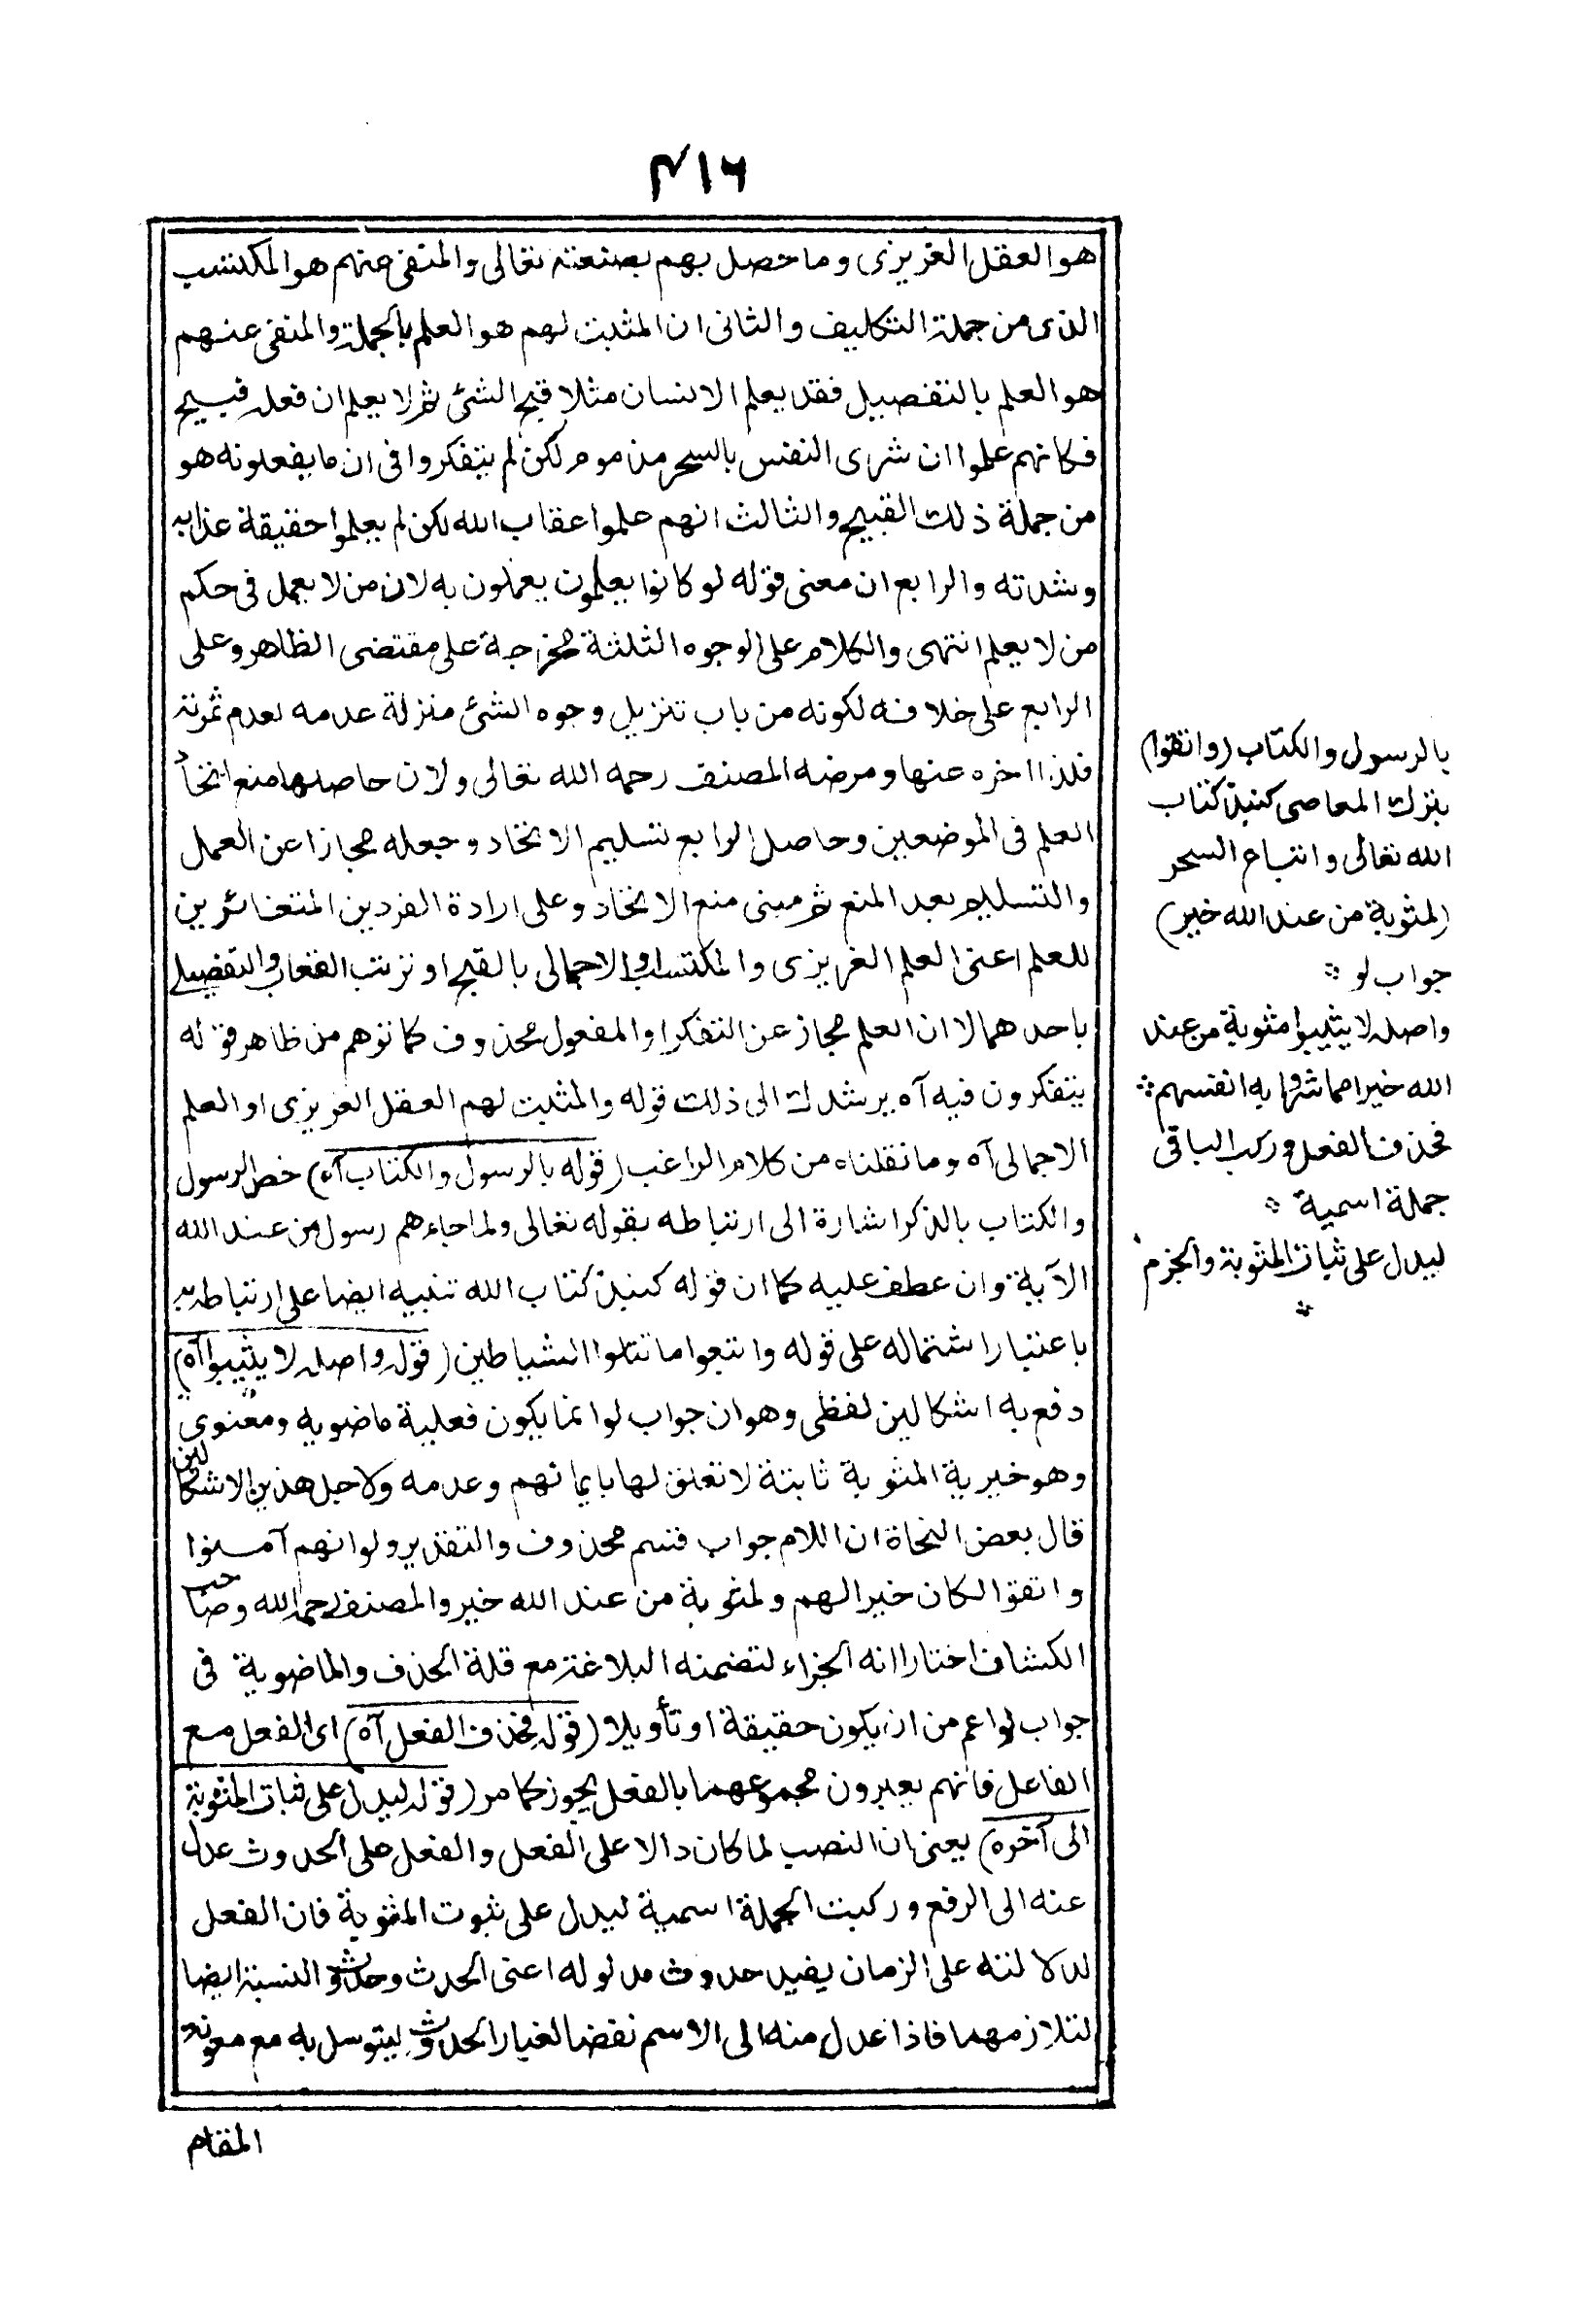 ٤١٦
هو العقل الغريزى وما حصل بهم بصنعته تعالى والمنفى عنهم هو المكتسب
الذى من جملة التكليف والثانى ان المثبت لهم هو العلم بالجملة والمنفى عنهم
هو العلم بالتفصيل فقد يعلم الانسان مثلا قبح الشئ ثم لا يعلم ان فعله قبيح
فكانهم علموا ان شرى النفس بالسحر مذموم لكن لم يتفكروا فى ان ما يفعلونه هو
من جملة ذلك القبيح والثالث انهم علموا عقاب الله لكن لم يعلموا حقيقة عذابه
وشدته والرابع ان معنى قوله لو كانوا يعلمون يعملون به لان من لا يعمل فى حكم
من لا يعلم انتهى والكلام على الوجوه الثلثة مخرجة على مقتضى الظاهر وعلى
الرابع على خلافه لكونه من باب تنزيل وجوه الشئ منزلة عدمه لعدم ثمرته
فلذا اخره عنها ومرضه المصنف رحمه الله تعالى ولان حاصلها منع اتحاد
العلم فى الموضعين وحاصل الرابع تسليم الاتحاد وجعله مجازا عن العمل
والتسليم بعد المنع ثم مبنى منع الاتحاد وعلى ارادة الفردين المتغائرين
للعلم اعنى العلم الغريزى والمكتسب او الاجمالى بالقبح او ترتب العقاب والتفصيلى
باحدهما لا ان العلم مجاز عن التفكر او المفعول محذوف كما توهم من ظاهر قوله
يتفكرون فيه آه يرشدك الى ذلك قوله والمثبت لهم العقل الغريزى او العلم
الاجمالى آه وما نقلناه من كلام الراغب (قوله بالرسول والكتاب آه) خص الرسول
والكتاب بالذكر اشارة الى ارتباطه بقوله تعالى ولما جاءهم رسول من عند الله
الآية وان عطف عليه كما ان قوله كنبذ كتاب الله تنبيه ايضا على ارتباطه به
باعتبار اشتماله على قوله واتبعوا ما تتلوا الشياطين (قوله واصله لا يثيبوا آه)
دفع به اشكالين لفظى وهو ان جواب لو انما يكون فعلية ماضوية ومعنوى
وهو خيرية المثوبة ثابتة لا تعلق لها بايمانهم وعدمه ولاجل هذين الاشكالين
قال بعض النحاة ان اللام جواب قسم محذوف والتقدير ولو انهم آمنوا
واتقوا لكان خيرا لهم ولمثوبة من عند الله خير والمصنف رحمه الله وصاحب
الكشاف اختارا انه الجزاء لتضمنه البلاغة مع قلة الحذف والماضوية فى
جواب لو اعم من ان يكون حقيقة او تأويلا (قوله فحذف الفعل آه) اى الفعل مع
الفاعل فانهم يعبرون مجموعهما بالفعل يجوز كما مر (قوله ليدل على ثبات المثوبة
الى آخره) يعنى ان النصب لما كان دالا على الفعل والفعل على الحدوث عدل
عنه الى الرفع وركبت الجملة اسمية ليدل على ثبوت المثوبة فان الفعل
لدلالته على الزمان يفيد حدوث مدلوله اعنى الحدث وحدوث النسبة ايضا
لتلازمهما فاذا عدل منه الى الاسم نفضا لغبار الحدوث ليتوسل به مع معونة
المقام
بالرسول والكتاب (واتقوا)
بترك المعاصى كنبذ كتاب
الله تعالى واتباع السحر
(لمثوبة من عند الله خير)
جواب لو
واصله لا يثيبوا مثوبة من عند
الله خيرا مما شروا به انفسهم
فحذف الفعل وركب الباقى
جملة اسمية
ليدل على ثبات المثوبة والجزم